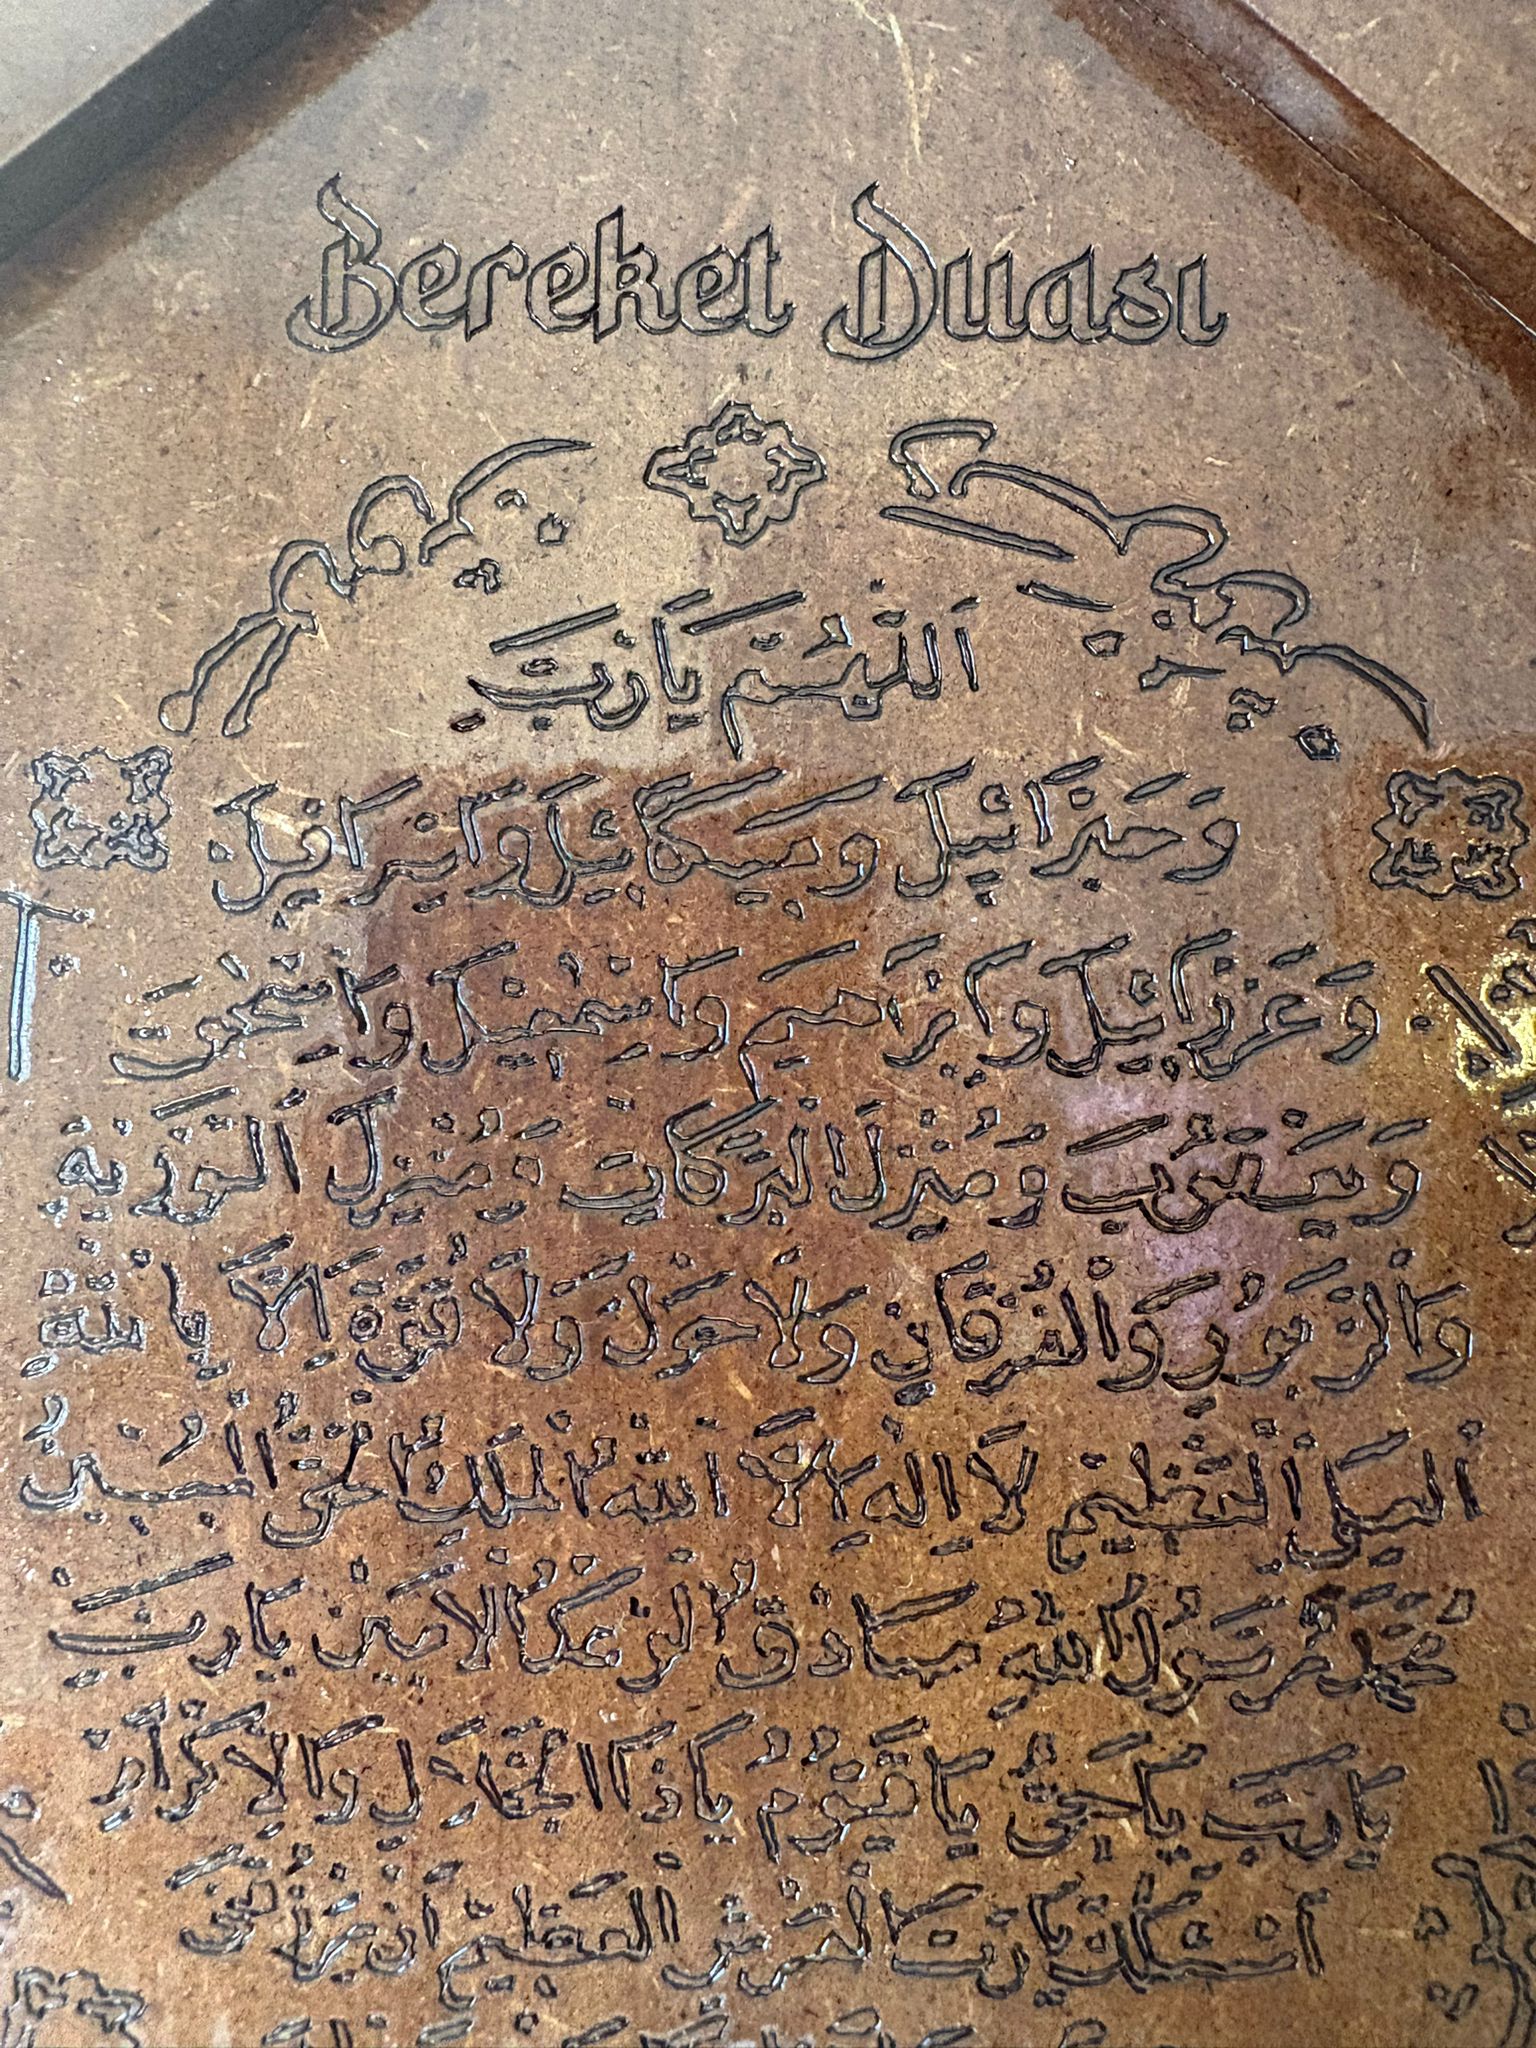 Bereket Duası
اَللّٰهُمَّ يَا رَبَّ
وَجَبْرَائِيلَ وَمِيكَائِيلَ وَاِسْرَافِيلَ
وَعَزْرَائِيلَ وَاِبْرَاهِيمَ وَاِسْمٰعِيلَ وَاِسْحٰقَ
وَيَعْقُوبَ وَمُنْزِلَ الْبَرَكَاتِ وَمُنْزِلَ التَّوْرٰيةِ
وَالزَّبُورِ وَالْفُرْقَانِ وَلَا حَوْلَ وَلَا قُوَّةَ اِلَّا بِاللّٰهِ
الْعَلِيِّ الْعَظِيمِ لَا اِلٰهَ اِلَّا اللّٰهُ الْمَلِكُ الْحَقُّ الْمُبِينُ
مُحَمَّدٌ رَسُولُ اللّٰهِ صَادِقُ الْوَعْدُ الْاَمِينُ يَا رَبِّ
يَا رَبِّ يَا حَيُّ يَا قَيُّومُ يَا ذَا الْجَلَالِ وَالْاِكْرَامِ
اَسْئَلُكَ يَا رَبَّ الْعَرْشِ الْعَظِيمِ اَنْ